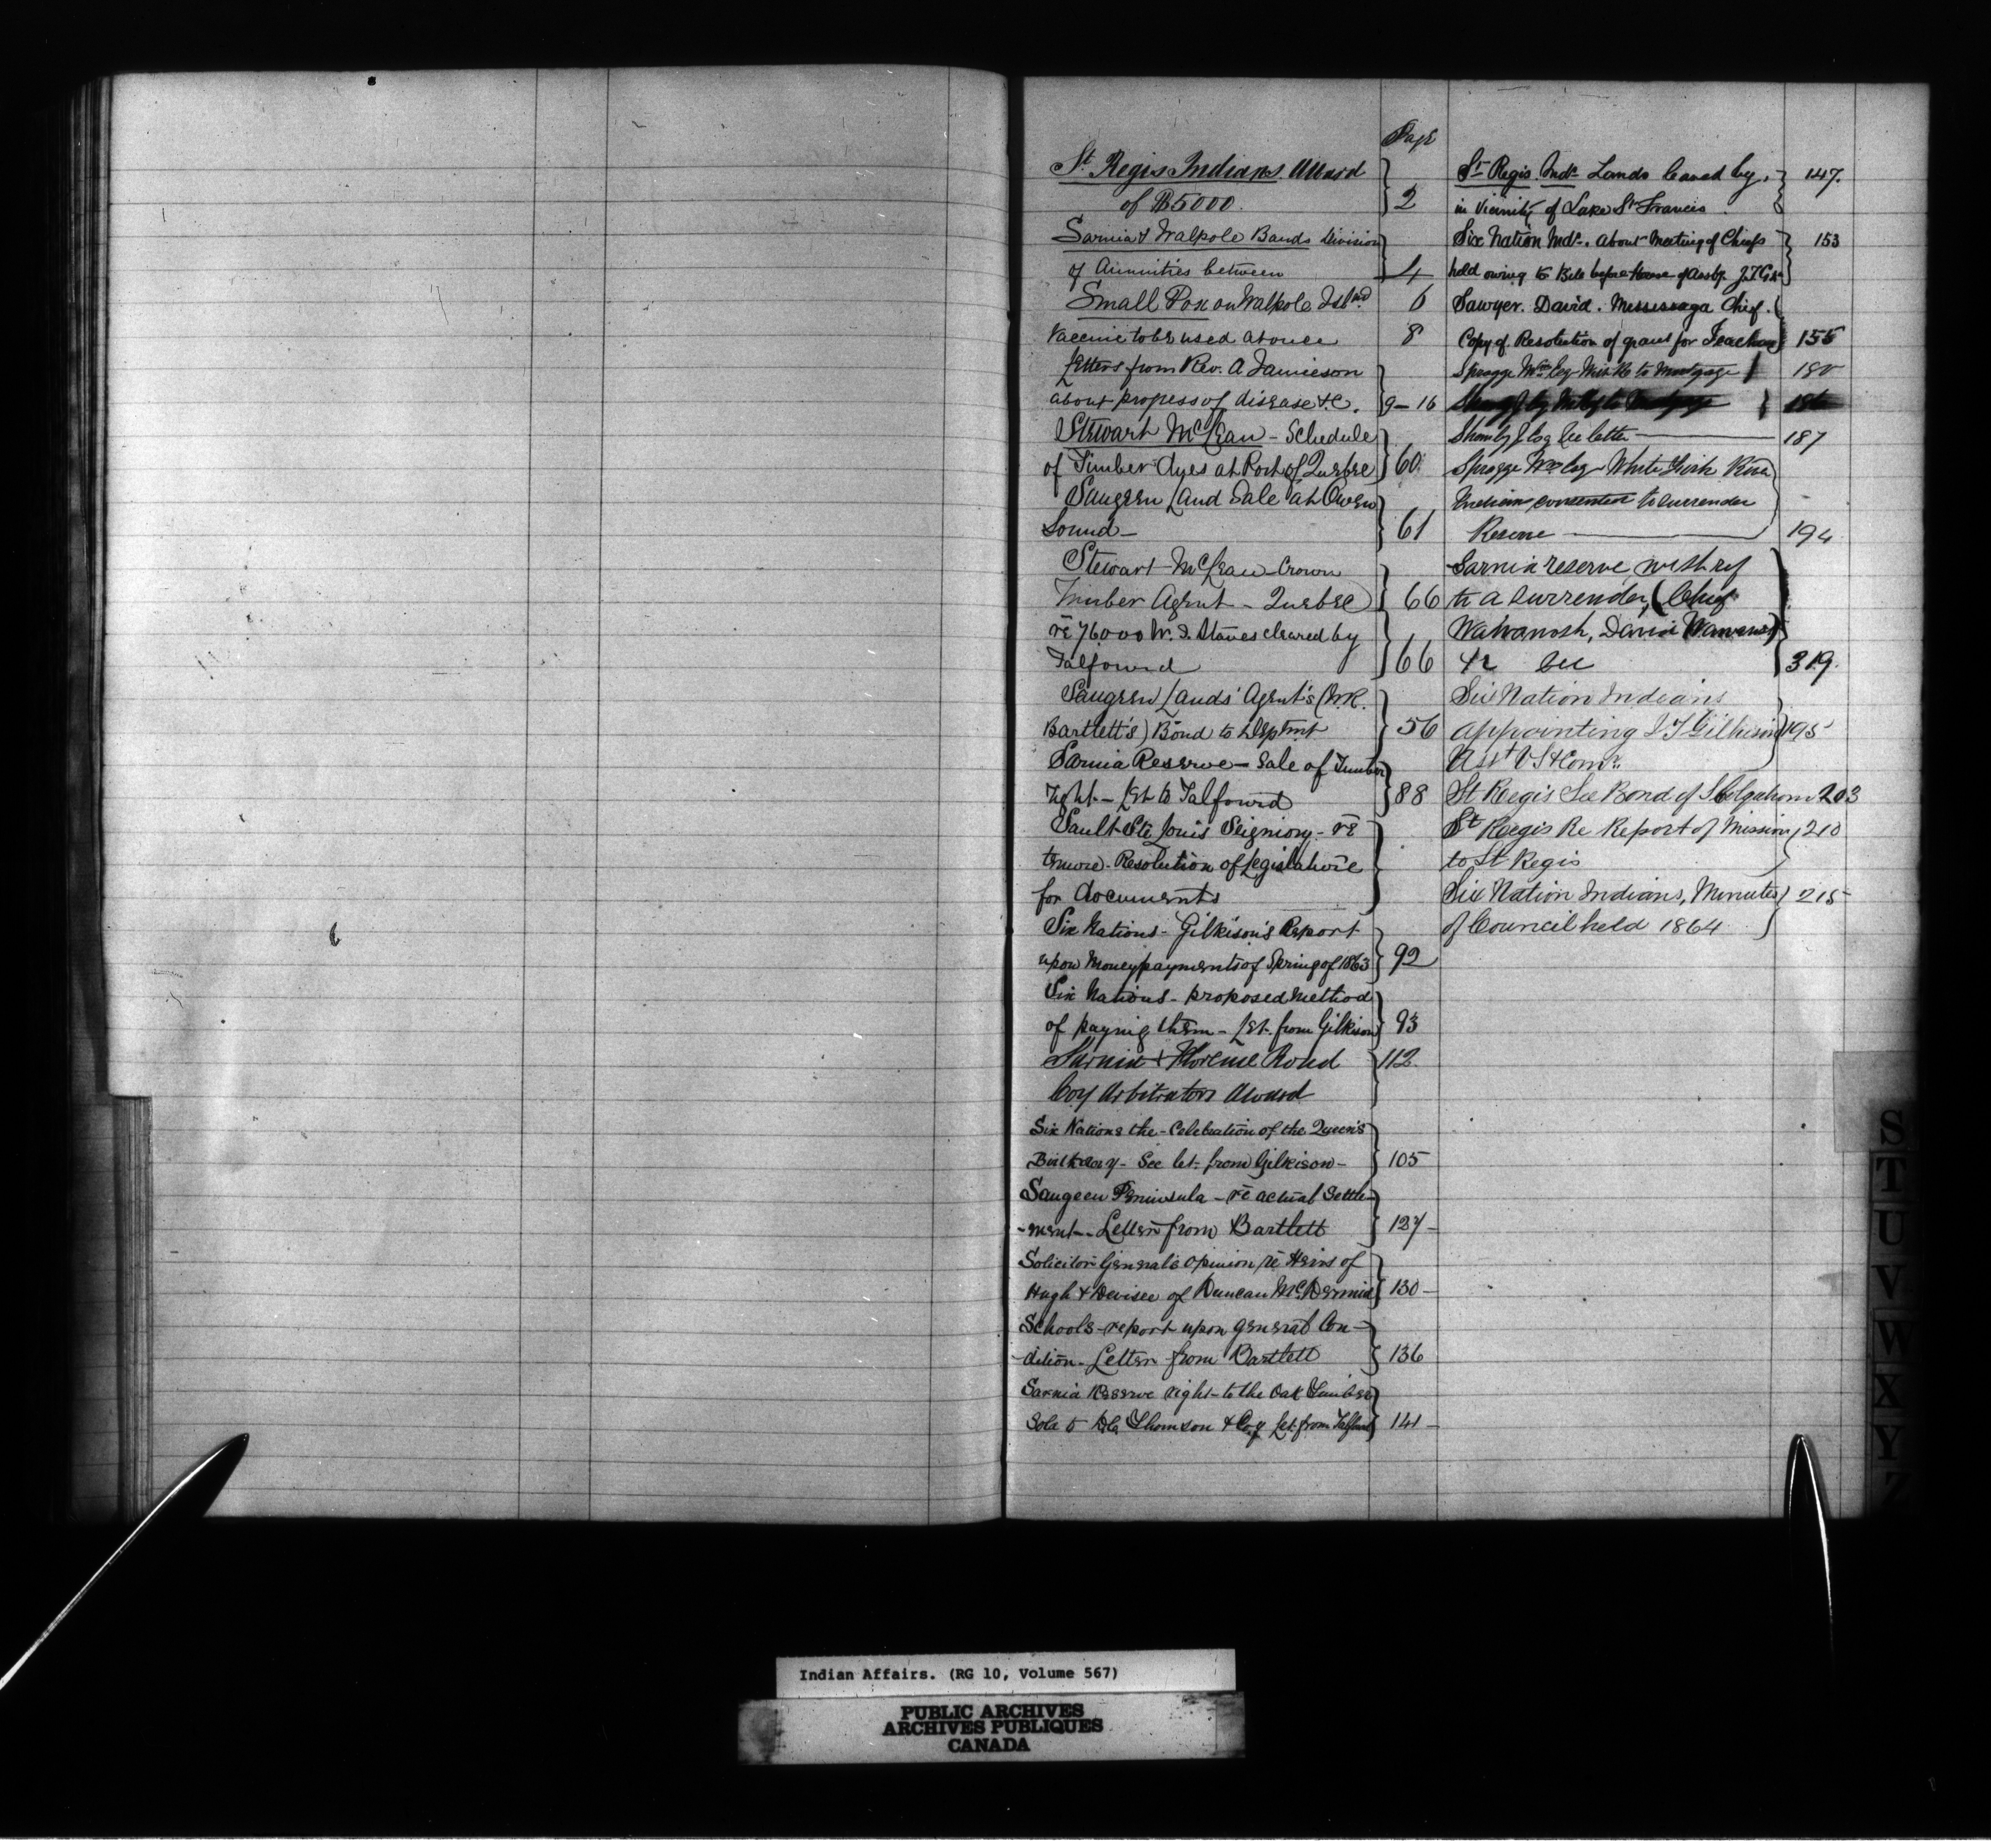 Page
St. Regis Indians Award
of $5000. 2
Sarnia & Walpole Bands Division
of Annuities between 4
Small Pox on Walpole Islnd 6
Vaccine to be used at once 8
Letters from Rev. A Jamieson
about progress of disease &c. 9-16
Stewart McLean - Schedule
of Timber Dues at Port of Quebec 60
Saugeen Land Sale at Owen
Sound - 61
Stewart McLean Crown
Timber Agent - Quebec 66
re 76000 W. I. Staves cleared by
Talfourd 66
Saugeen Lands' Agent's (W.R.
Bartlett's) Bond to Deptmt 56
Sarnia Reserve - Sale of Timber
right - Let to Talfourd 88
Sault Ste Louis Seigniory - re
Resolution of Legislature
for documents
Six Nations - Gilkison's Report
upon Money payments of Spring of 1863 92
Six Nations - proposed Method
of paying them - Let. from Gilkison 93
Sarnia & Florence Road 112
Coy Arbitrators Award
Six Nations the - Celebration of the Queen's
Birthday - See let. from Gilkison - 105
Saugeen Peninsula - re actual Settle-
-ment - Letter from Bartlett 127-
Solicitor General's opinion re Heirs of
Hugh & Devisee of Duncan McDermid 130-
Schools - report upon general Con-
-dition - Letter from Bartlett 136
Sarnia Reserve right to the Oak Timber
Sold to Thomson & Coy Let. from Talfourd 141-
St. Regis Inds. Lands leased by
in Vicinity of Lake St Francis 147.
Six Nation Inds. about Meeting of Chiefs 153
held owing to Bill before House of Assbly
Sawyer. David. Mississaga Chief.
Copy of Resolution of grant for Teachers 155
Spragge Wm to Mortgage 180
187
Spragge Wm White Fish River
Indians consented to surrender
Reserve 194
Sarnia reserve with ref
to a surrender, (Chief
Wawanosh, David Wawanosh)
&c see 319.
Six Nation Indians
appointing J T Gilkison 195
Asst V. S. & Comr.
St Regis See Bond of 203
St Regis Re Report of Mission 210
to St Regis
Six Nation Indians, Minutes 215
of Council held 1864
S
T
U
V
W
X
Y
Z
Indian Affairs. (RG 10, Volume 567)
PUBLIC ARCHIVES
ARCHIVES PUBLIQUES
CANADA